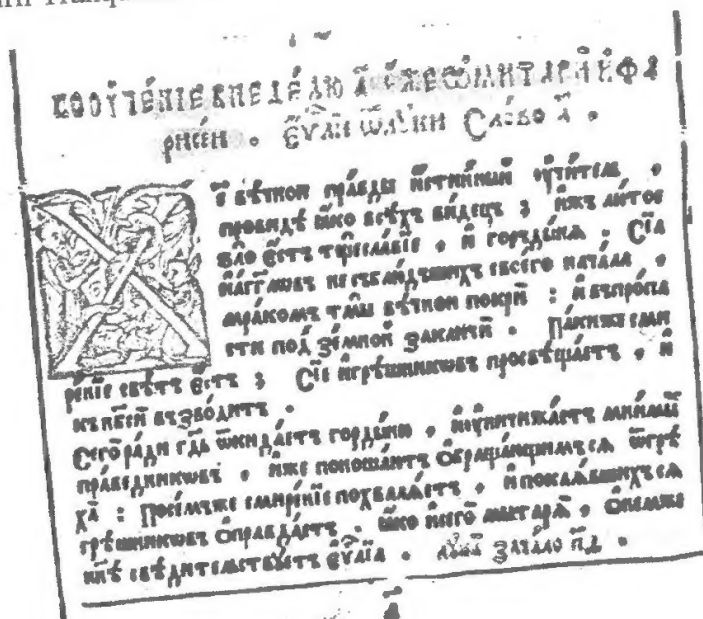 Tranqu
Пооуче́нїе в неде́лю а҃ є҆́же ѡ҆ мытарѝ и҆ фа
рисе́и . Єѵ҃лїи ѿ лꙋ́ки Сло́во а҃ .
вѣ́чнои пра́вды и҆́стинный оу҆чи́тель ,
провидѣ̀ ꙗ҆́ко всѣ́хъ ви́децъ : и҆́жъ лю́тое
ѕло̀ є҆́стъ тщесла́вїе , и҆ горды́нѧ . Сїѧ̀
и҆ а҆́гг҃лѡвъ несъблю́дъшихъ своего̀ нача́ла ,
мра́комъ тмы̀ вѣ́чнои покры̀ : и҆ въпро́па
сти под зе́мной заключѝ . Па́киже сми
ре́нїе свѣ́тъ є҆́стъ : Сїѐ и҆ грѣ́шникѡвъ просвѣща́етъ , и҆
къ нб҃си възво́дитъ .
Сего̀ ра́ди гд҃ь ѿкида́етъ горды́ню , и҆ оуничижа́етъ мни́мый
пра́ведникѡвъ , и҆́же поноша́ютъ ѻ҆браща́ющимъсѧ ѿ грѣ
ха̀ : Посе́мъже смире́нїе похвалѧ́етъ , и҆ покаѧ́вшихъсѧ
грѣ́шникѡвъ ѻ҆правда́етъ . ꙗ҆́ко и҆ сего̀ мытарѧ̀ , ѻ҆ не́мже
нн҃ѣ свѣ́дителствꙋетъ єѵ҃лїа . лꙋка̀ зача́ло п҃д .